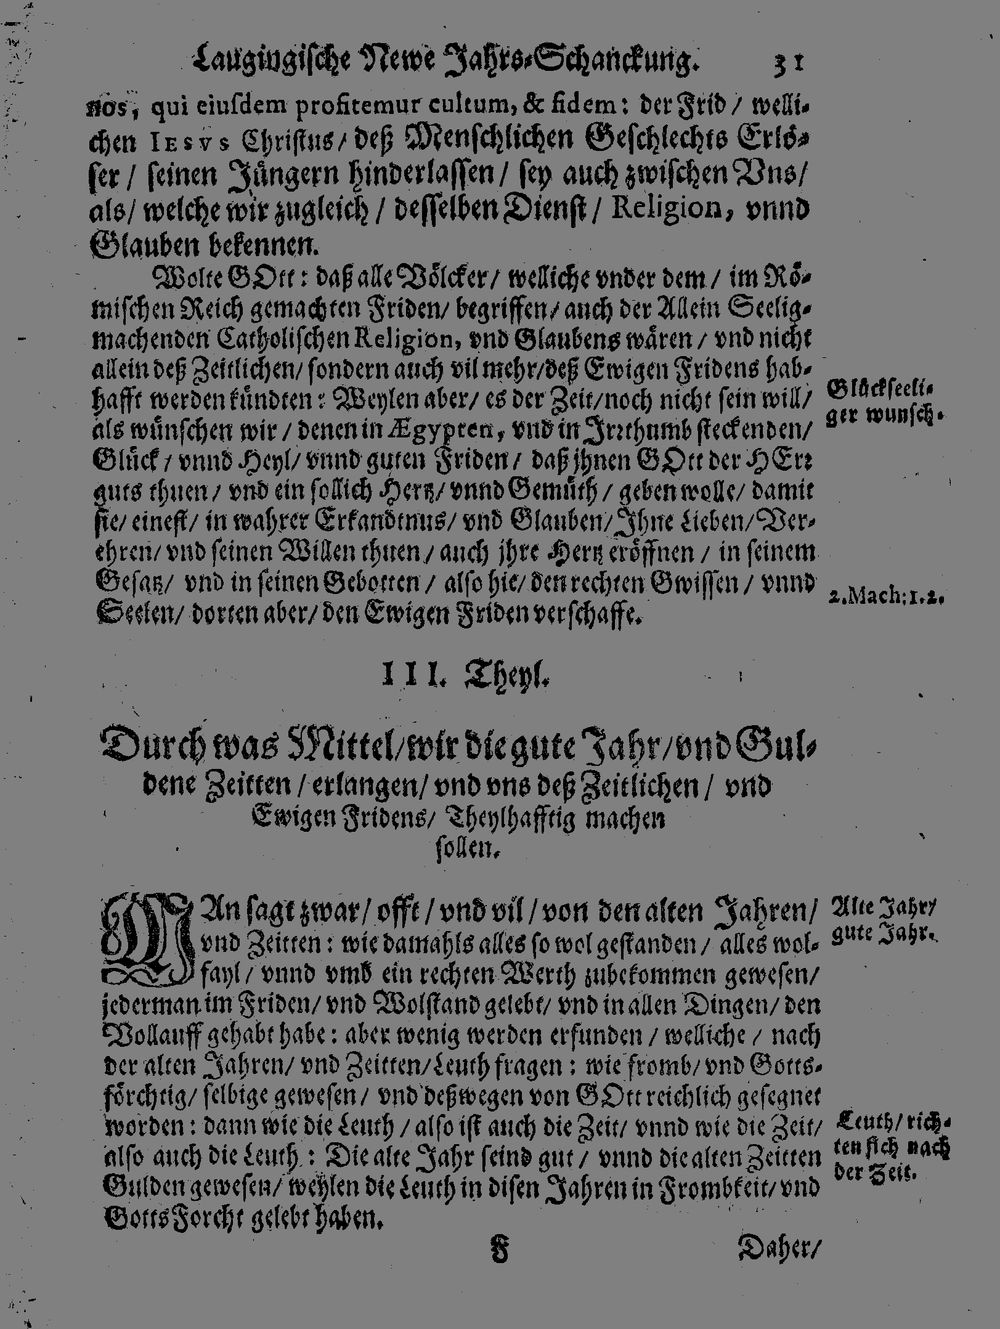 Laugingische Newe Jahrs-Schanckung. 31
nos, qui eiusdem profitemur cultum, & fidem: der Frid / welli-
chen IESVS Christus / deß Menschlichen Geschlechts Erlö-
ser / seinen Jüngern hinderlassen / sey auch zwischen Vns /
als / welche wir zugleich / desselben Dienst / Religion, vnnd
Glauben bekennen.
Wolte GOtt: daß alle Völcker / welliche vnder dem / im Rö-
mischen Reich gemachten Friden / begriffen / auch der Allein Seelig-
machenden Catholischen Religion, vnd Glaubens wären / vnd nicht
allein deß Zeitlichen / sondern auch vil mehr / deß Ewigen Fridens hab-
hafft werden kündten: Weylen aber / es der Zeit / noch nicht sein will /
als wünschen wir / denen in Ægypten, vnd in Irrthumb steckenden /
Glück / vnnd Heyl / vnnd guten Friden / daß jhnen GOtt der HErr
guts thuen / vnd ein sollich Hertz / vnnd Gemüth / geben wolle / damit
sie / einest / in wahrer Erkandtnus / vnd Glauben / Ihne Lieben / Ver-
ehren / vnd seinen Willen thuen / auch jhre Hertz eröffnen / in seinem
Gesatz / vnd in seinen Gebotten / also hie / den rechten Gwissen / vnnd
Seelen / dorten aber / den Ewigen Friden verschaffe.
Glückseeli-
ger wunsch.
2. Mach: 1. 2.
III. Theyl.
Durch was Mittel / wir die gute Jahr / vnd Gul-
dene Zeitten / erlangen / vnd vns deß Zeitlichen / vnd
Ewigen Fridens / Theylhafftig machen
sollen.
MAn sagt zwar / offt / vnd vil / von den alten Jahren /
vnd Zeitten: wie damahls alles so wol gestanden / alles wol-
fayl / vnnd vmb ein rechten Werth zubekommen gewesen /
jederman im Friden / vnd Wolstand gelebt / vnd in allen Dingen / den
Vollauff gehabt habe: aber wenig werden erfunden / welliche / nach
der alten Jahren / vnd Zeitten / Leuth fragen: wie fromb / vnd Gotts-
förchtig / selbige gewesen / vnd deßwegen von GOtt reichlich gesegnet
worden: dann wie die Leuth / also ist auch die Zeit / vnnd wie die Zeit /
also auch die Leuth: Die alte Jahr seind gut / vnnd die alten Zeitten
Gulden gewesen / weylen die Leuth in disen Jahren in Frombkeit / vnd
Gotts Forcht gelebt haben.
Alte Jahr /
gute Jahr.
Leuth / rich-
ten sich nach
der Zeit.
F Daher /